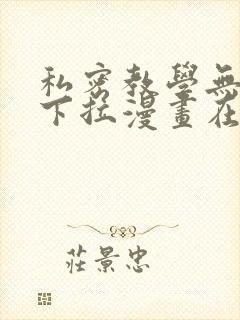 私密教學無
下拉漫畫在
莊景忠